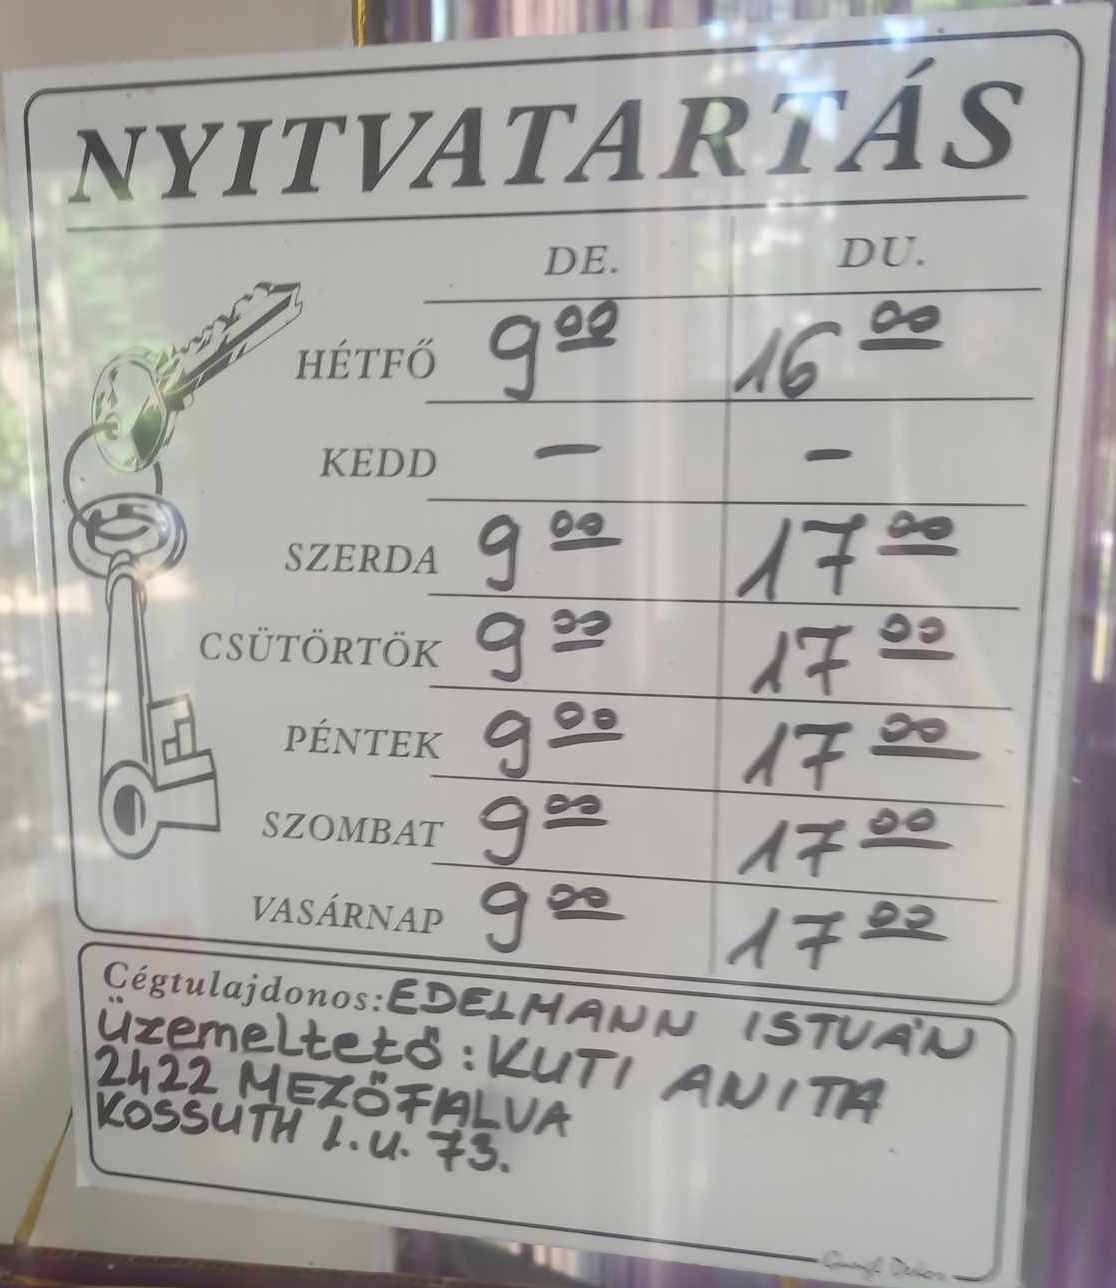 NYITVATARTÁS
DE. DU.
HÉTFŐ 9 00 16 00
KEDD – –
SZERDA 9 00 17 00
CSÜTÖRTÖK 9 00 17 00
PÉNTEK 9 00 17 00
SZOMBAT 9 00 17 00
VASÁRNAP 9 00 17 00
Cégtulajdonos: EDELMANN ISTVÁN
Üzemeltető: KUTI ANITA
2422 MEZŐFALVA
KOSSUTH L.U. 73.